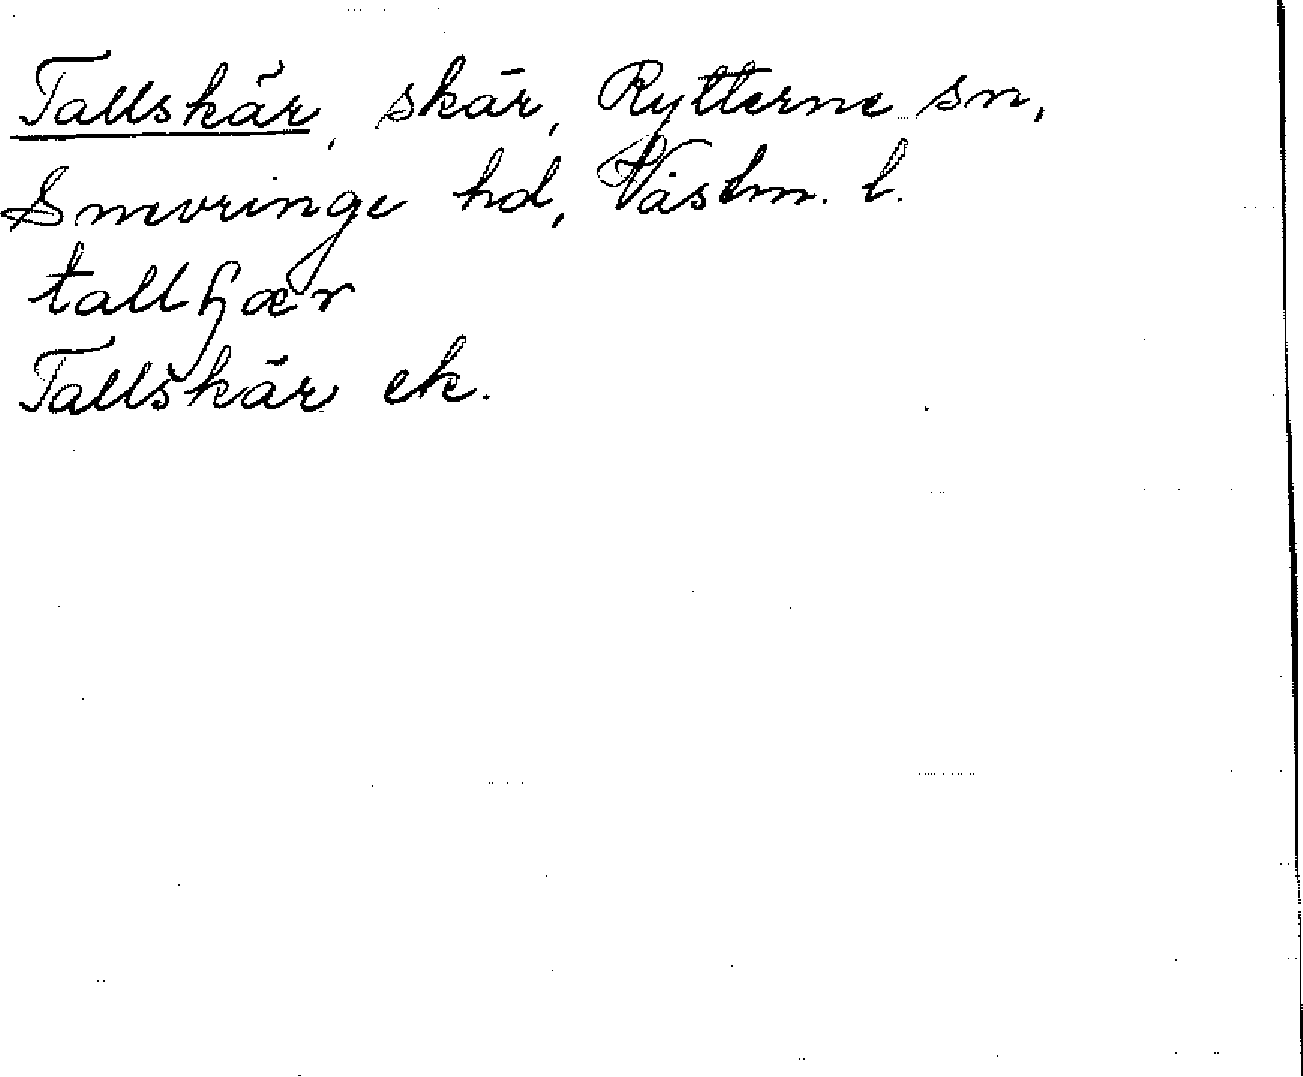 Tallskär, skär, Rytterne sn,
Snevringe hd, Västm. l.
tallɧær
Tallskär ek.